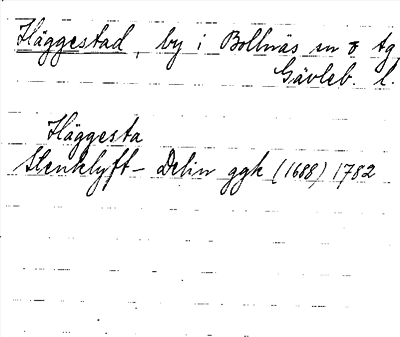 Häggestad, by i Bollnäs sn o tg
Gävleb. l.
Häggesta
Stenklyft- Delin ggk (1688) 1782